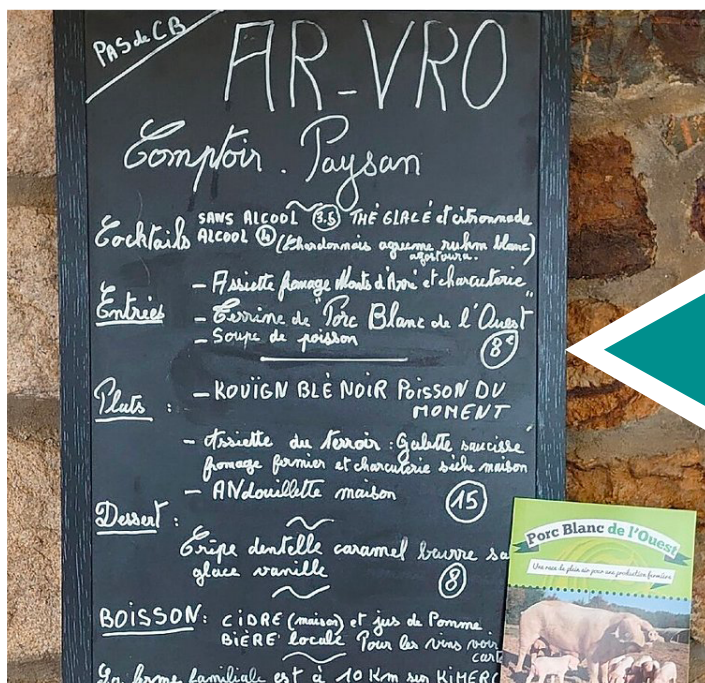 PAS de CB
AR-VRO
Comptoir. Paysan
Cocktails SANS ALCOOL 3.5 THÉ GLACÉ et citronnade
ALCOOL 4 (Chardonnais agrume ruhm blanc)
agostura.
Entrées
- Assiette fromage Monts d'Arré et charcuterie
- Terrine de "Porc Blanc de l'Ouest"
- Soupe de poisson
8€
Plats :
- KOUÏGN BLÉ NOIR POISSON DU
MOMENT
- Assiette du terroir : Galette saucisse
fromage fermier et charcuterie sèche maison
- ANdouillette maison 15
Dessert :
Crêpe dentelle caramel beurre sa
glace vanille 8
BOISSON: CIDRE (maison) et jus de Pomme
BIÈRE locale Pour les vins voir
carte
La ferme familiale est à 10 Km sur KIMERC
Porc Blanc de l'Ouest
Une race de plein air pour une production fermière